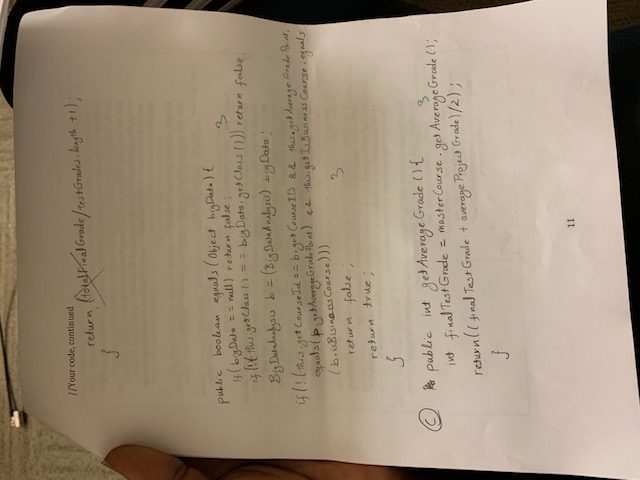 //Your code, continued
return (totalFinalGrade/testGrades.length +1);
}
public boolean equals(Object bigData) {
if(bigData == null) return false;
3
if(!(this.getClass() == bigData.getClass())) return false;
BigDataAnalysis b = (BigDataAnalysis) bigData;
if(!(this.getCourseId == b.getCourseID && this.getAverageGradePoint.
equals(b.getAverageGradePoint) && this.getIsBusinessCourse.equals
(b.isBisinasss Course)))
3
return false;
return true;
}
C public int getAverageGrade(){
3
int finalTestGrade = masterCourse.getAverageGrade();
return((finalTestGrade + averageProjectGrade)/2);
}
11